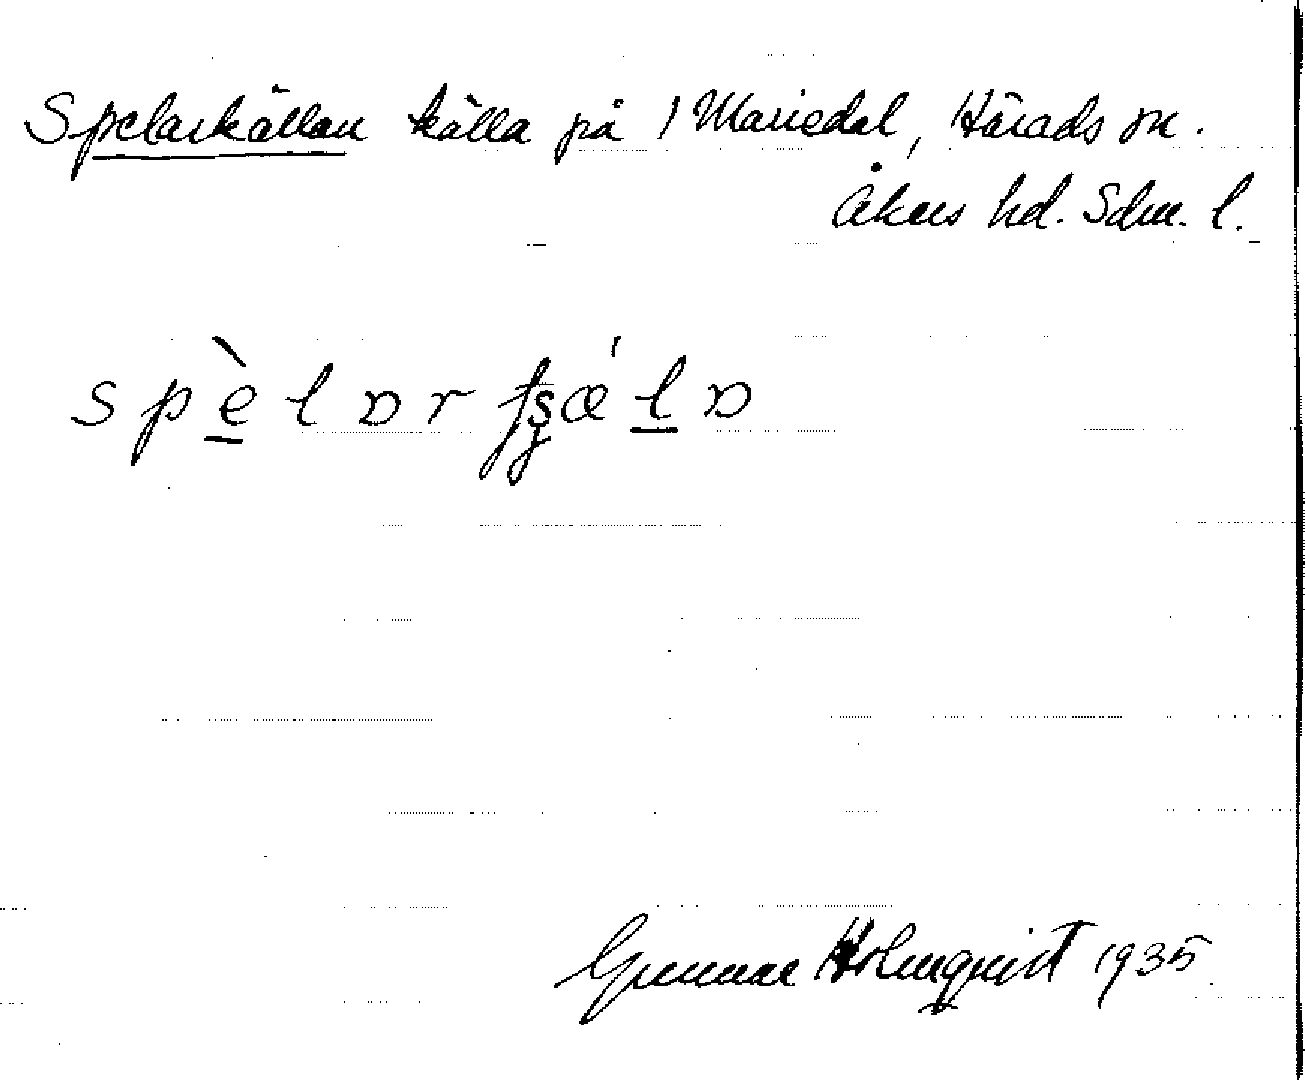 Spelarkällan källa på 1 Mariedal, Härads sn.
Åkers hd. Sdm. l.
Gunnar Holmquist 1935